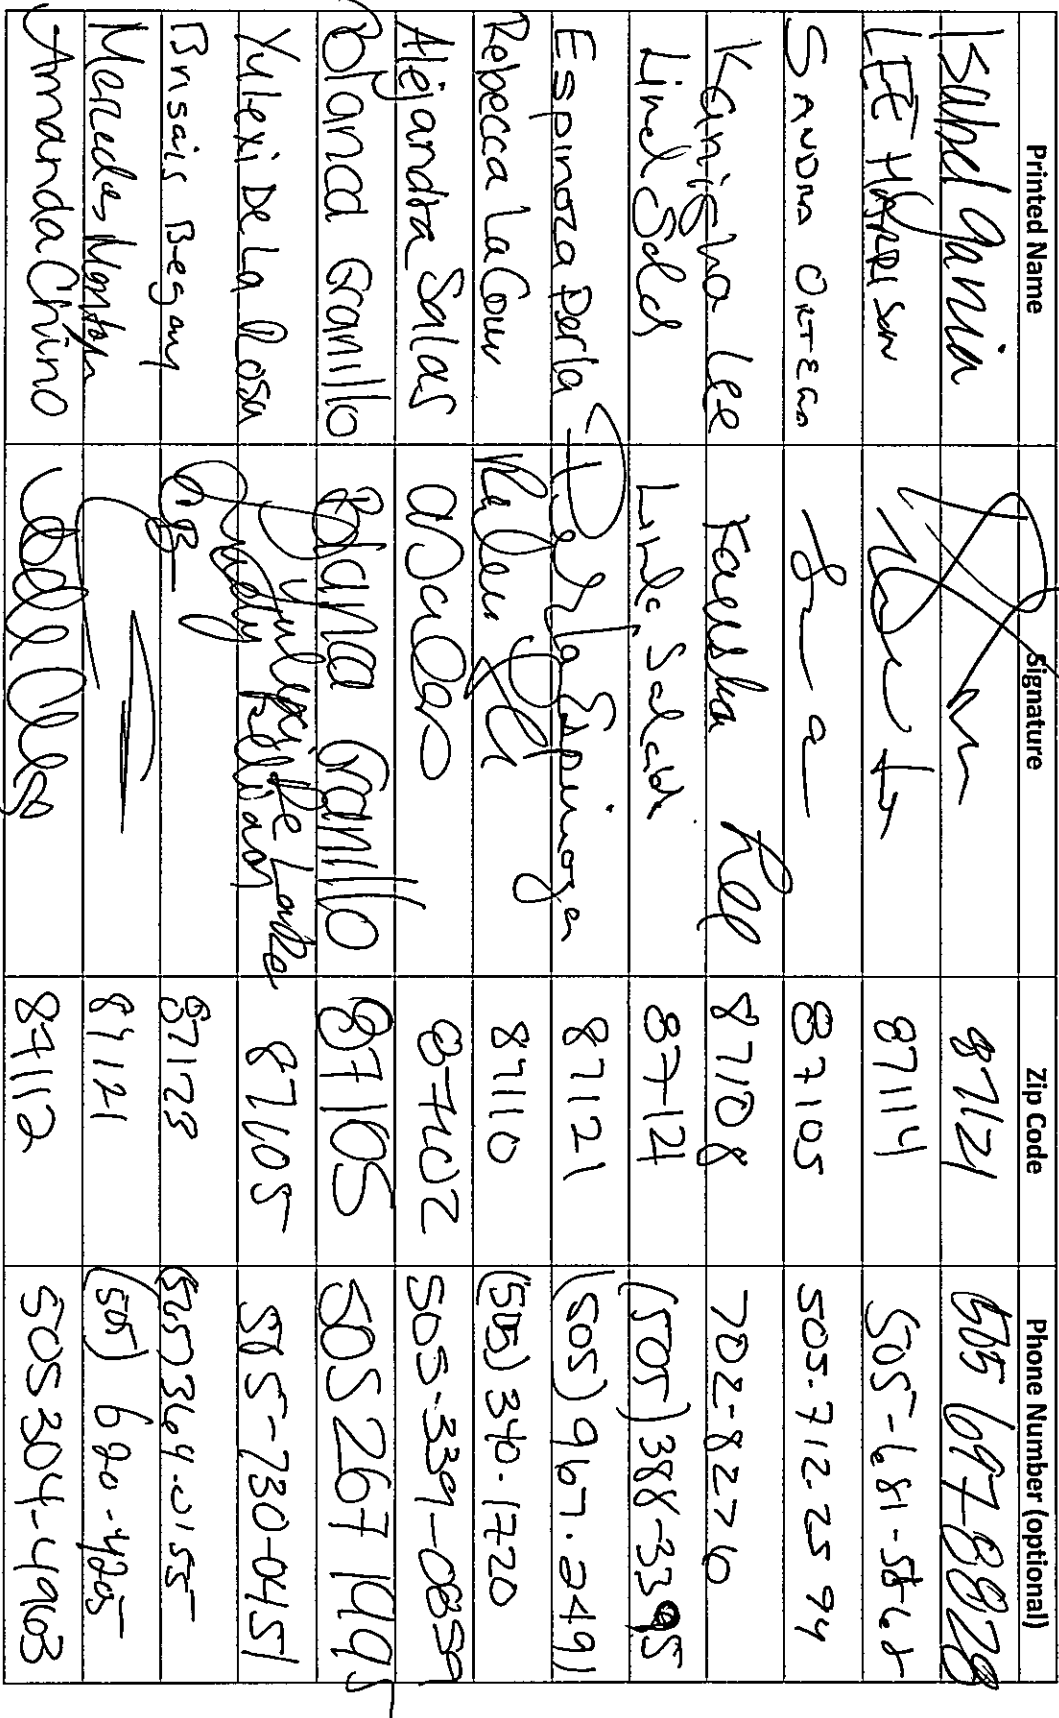 Printed Name Signature Zip Code Phone Number (optional)
Isabel Garcia 87121 505 697-8828
LEE HARRISON 87114
SANDRA ORTEGA 87105 505.712.2594
Kanisha Lee Lee 87108 702-8276
87121 (505) 388-3395
Espinoza Perla Perla Espinoza 87121 (505) 967.2491
Rebecca LaCour 87110 (505) 340.1720
Alejandra Salas 87102 505-339-0859
Blanca Granillo Blanca Granillo 87105 505 267 1995
Yulexi De La Rosa 87105 505-730-0451
Brisais Begay 87123
Mercedes 87121 (505)
Amanda Chino 87112 505 304-4963